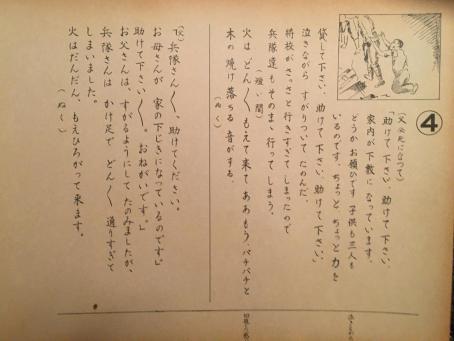 ④
(父 必死になって)
「助けて下さい、助けて下さい、
家内が下敷になっています。
どうかお願ひです 子供も三人も
いるのです、ちょっと、ちょっと力を
貸して下さい、助けて下さい、助けて下さい」
泣きながら すがりついてたのんだ
将校がさっさと行きすぎてしまったので
(短い間)
兵隊達もそのまゝ行ってしまう。
火は どん〱もえて来て ああもう、パチパチと
木の焼け落ちる 音がする。
(ぬく)
「(父)兵隊さん〱、助けてください。
お母さんが 家の下じきになっているのです」
助けて下さい〱。おねがいです。」
お父さんは、すがるようにして たのみましたが、
兵隊さんは かけ足で どん〱 通りすぎて
しまいました。
火はだんだん、もえひろがって来ます。
(ぬく)